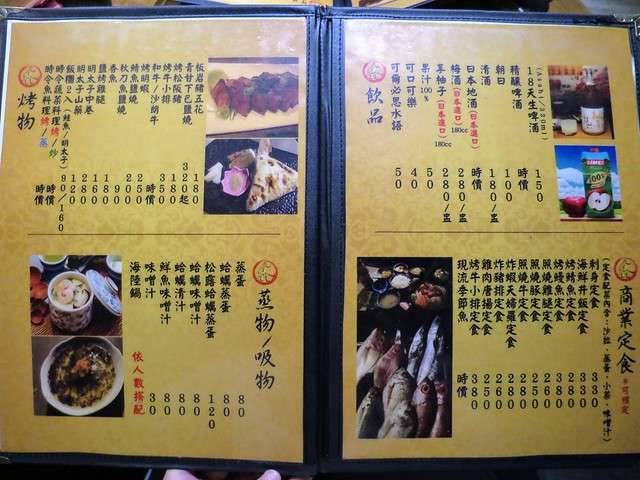 烤物
板岩豬五花 180
青甘下巴鹽燒 320起
烤松阪豬 180
烤牛小排 350
和牛/沙朗牛 時價
烤明蝦
鯖魚鹽燒
秋刀魚鹽燒
香魚
鹽烤雞腿
明太子中卷
明太子山藥 120
飯糰2入(鮭魚/明太子) 90/160
時令蔬菜料理 烤/炒 時價
時令魚料理 烤/蒸 時價
蒸物/吸物
蒸蛋 80
蛤蠣蒸蛋 80
松露蛤蠣蒸蛋 120
蛤蠣味噌汁 80
蛤蠣清汁 80
鮮魚味噌汁 80
味噌汁 30
海陸鍋 依人數搭配
飲品
(Asahi/330ml)
18天生啤酒 150
精釀啤酒 時價
朝日 100
清酒 180/盅
日本地酒(日本進口) 時價
梅酒(日本進口)180cc 280/盅
草柚子(日本進口)180cc 280/盅
果汁100% 50
可口可樂 40
可爾必思水語 50
商業定食 *可預定
(定食配菜內含:沙拉、蒸蛋、小菜、味噌汁)
刺身定食 330
海鮮丼飯定食 330
烤鯖魚定食 280
烤鰻魚定食 380
照燒雞腿定食 260
照燒豚定食 250
炸蝦天婦羅定食 280
炸豬排定食 260
雞肉唐揚定食 250
烤牛小排定食 380
現流季節魚 時價